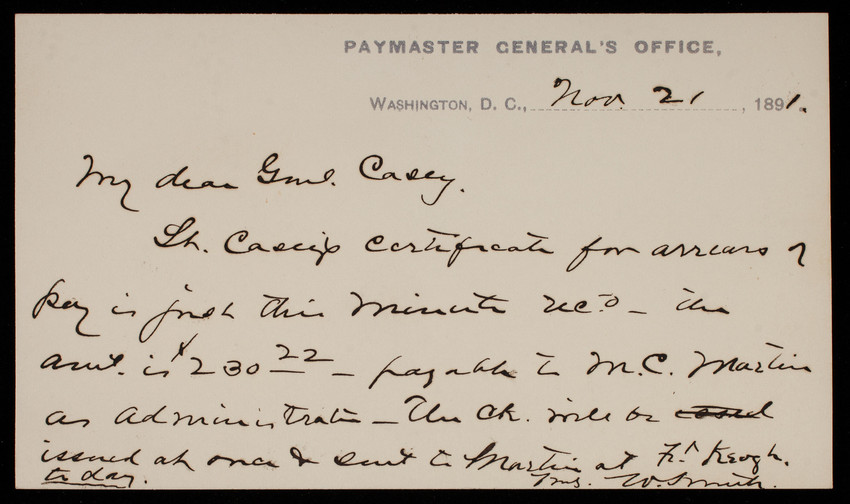 PAYMASTER GENERAL'S OFFICE,
WASHINGTON, D. C., Nov. 21, 1891.
My dear Genl. Casey,
Lt. Casey's certificate for arrears of
pay is just this minute rec'd – the
amt. is $230 22 – payable to M.C. Martin
as administrator – The ck. will be
issued at once & sent to Martin at Ft. Keogh.
to day. W. Smith.